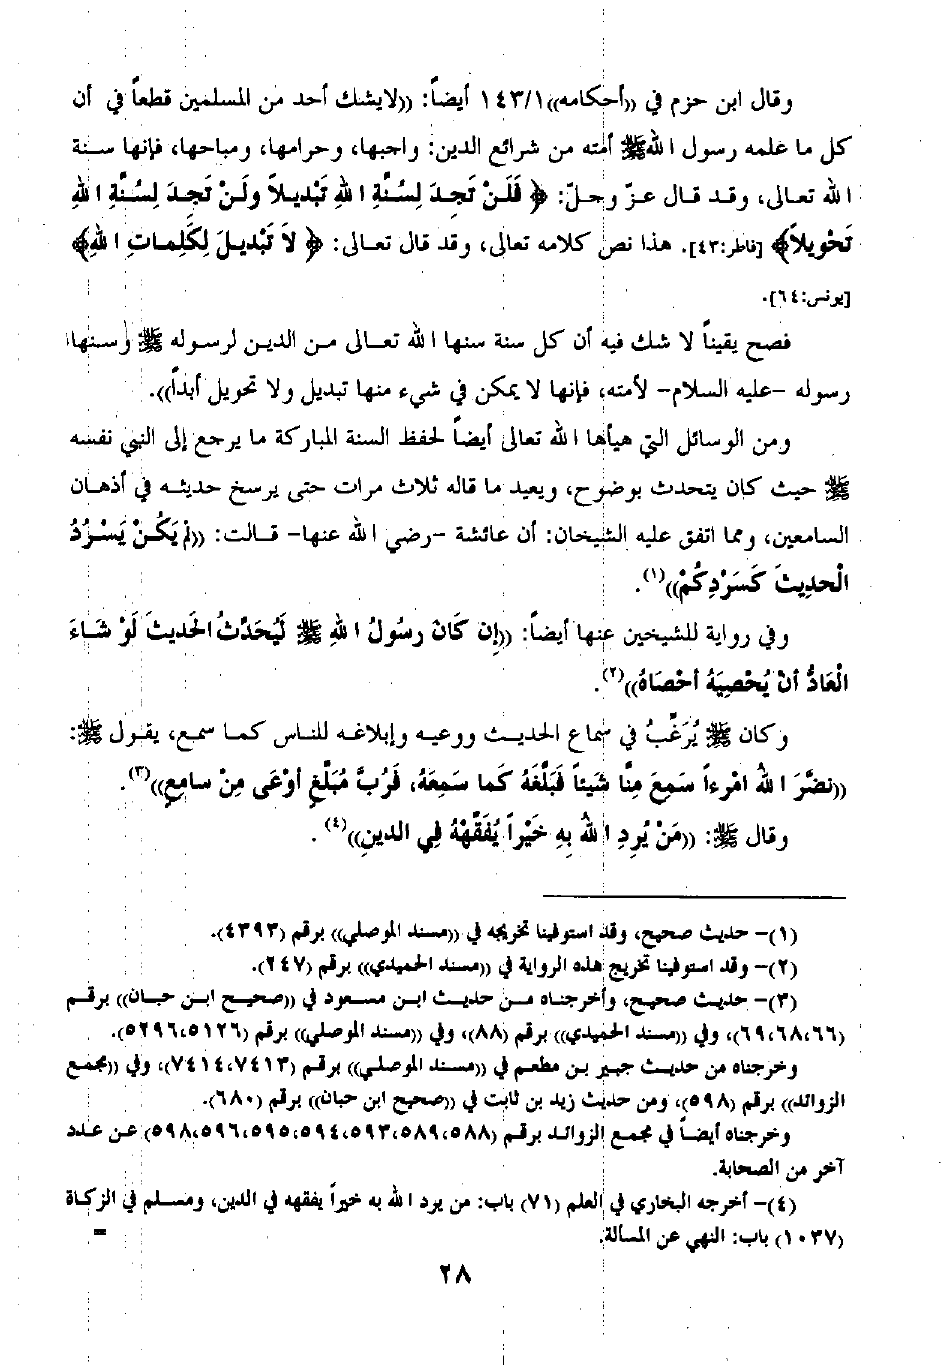 وقال ابن حزم في ((أحكامه)) ١٤٣/١ أيضاً: ((لايشك أحد من المسلمين قطعاً في أن
كل ما علمه رسول الله ﷺ أمته من شرائع الدين: واجبها، وحرامها، ومباحها، فإنها سنة
الله تعالى، وقد قال عزّ وجلّ: ﴿ فَلَنْ تَجِدَ لِسُنَّةِ اللهِ تَبْدِيلاً ولَنْ تَجِدَ لِسُنَّةِ اللهِ
تَحْوِيلاً﴾ [فاطر:٤٣]. هذا نص كلامه تعالى، وقد قال تعالى: ﴿ لاَ تَبْدِيلَ لِكَلِمَاتِ اللهِ﴾
[يونس:٦٤].
فصح يقيناً لا شك فيه أن كل سنة سنها الله تعالى من الدين لرسوله ﷺ وسنها
رسوله -عليه السلام- لأمته، فإنها لا يمكن في شيء منها تبديل ولا تحويل أبداً)).
ومن الوسائل التي هيأها الله تعالى أيضاً لحفظ السنة المباركة ما يرجع إلى النبي نفسه
ﷺ حيث كان يتحدث بوضوح، ويعيد ما قاله ثلاث مرات حتى يرسخ حديثه في أذهان
السامعين، ومما اتفق عليه الشيخان: أن عائشة -رضي الله عنها- قالت: ((لم يَكُنْ يَسْرُدُ
الْحدِيثَ كَسَرْدِكُمْ))(١).
وفي رواية للشيخين عنها أيضاً: ((إِن كَانَ رسُولُ اللهِ ﷺ لَيُحَدِّثُ الحَدِيثَ لَوْ شَاءَ
الْعَادُّ أنْ يُحْصِيَهُ أحْصَاهُ))(٢).
وكان ﷺ يُرَغِّبُ في سماع الحديث ووعيه وإبلاغه للناس كما سمع، يقول ﷺ:
((نضَّرَ اللهُ امْرءاً سَمِعَ مِنَّا شَيئاً فَبَلَّغَهُ كَما سَمِعَهُ، فَرُبَّ مُبَلَّغٍ أوْعَى مِنْ سامِعٍ))(٣).
وقال ﷺ: ((مَنْ يُرِدِ اللهُ بِهِ خَيْراً يُفَقِّهْهُ فِي الدينِ))(٤).
(١)- حديث صحيح، وقد استوفينا تخريجه في ((مسند الموصلي)) برقم (٤٣٩٣).
(٢)- وقد استوفينا تخريج هذه الرواية في ((مسند الحميدي)) برقم (٢٤٧).
(٣)- حديث صحيح، وأخرجناه من حديث ابن مسعود في ((صحيح ابن حبان)) برقم
(٦٦،٦٨،٦٩)، وفي ((مسند الحميدي)) برقم (٨٨)، وفي ((مسند الموصلي)) برقم (٥١٢٦،٥٢٩٦).
وخرجناه من حديث جبير بن مطعم في ((مسند الموصلي)) برقم (٧٤١٣،٧٤١٤)، وفي ((مجمع
الزوائد)) برقم (٥٩٨)، ومن حديث زيد بن ثابت في ((صحيح ابن حبان)) برقم (٦٨٠).
وخرجناه أيضاً في مجمع الزوائد برقم (٥٨٨،٥٨٩،٥٩٣،٥٩٤،٥٩٥،٥٩٦،٥٩٨) عن عدد
آخر من الصحابة.
(٤)- أخرجه البخاري في العلم (٧١) باب: من يرد الله به خيراً يفقهه في الدين، ومسلم في الزكاة
(١٠٣٧) باب: النهي عن المسألة. =
٢٨